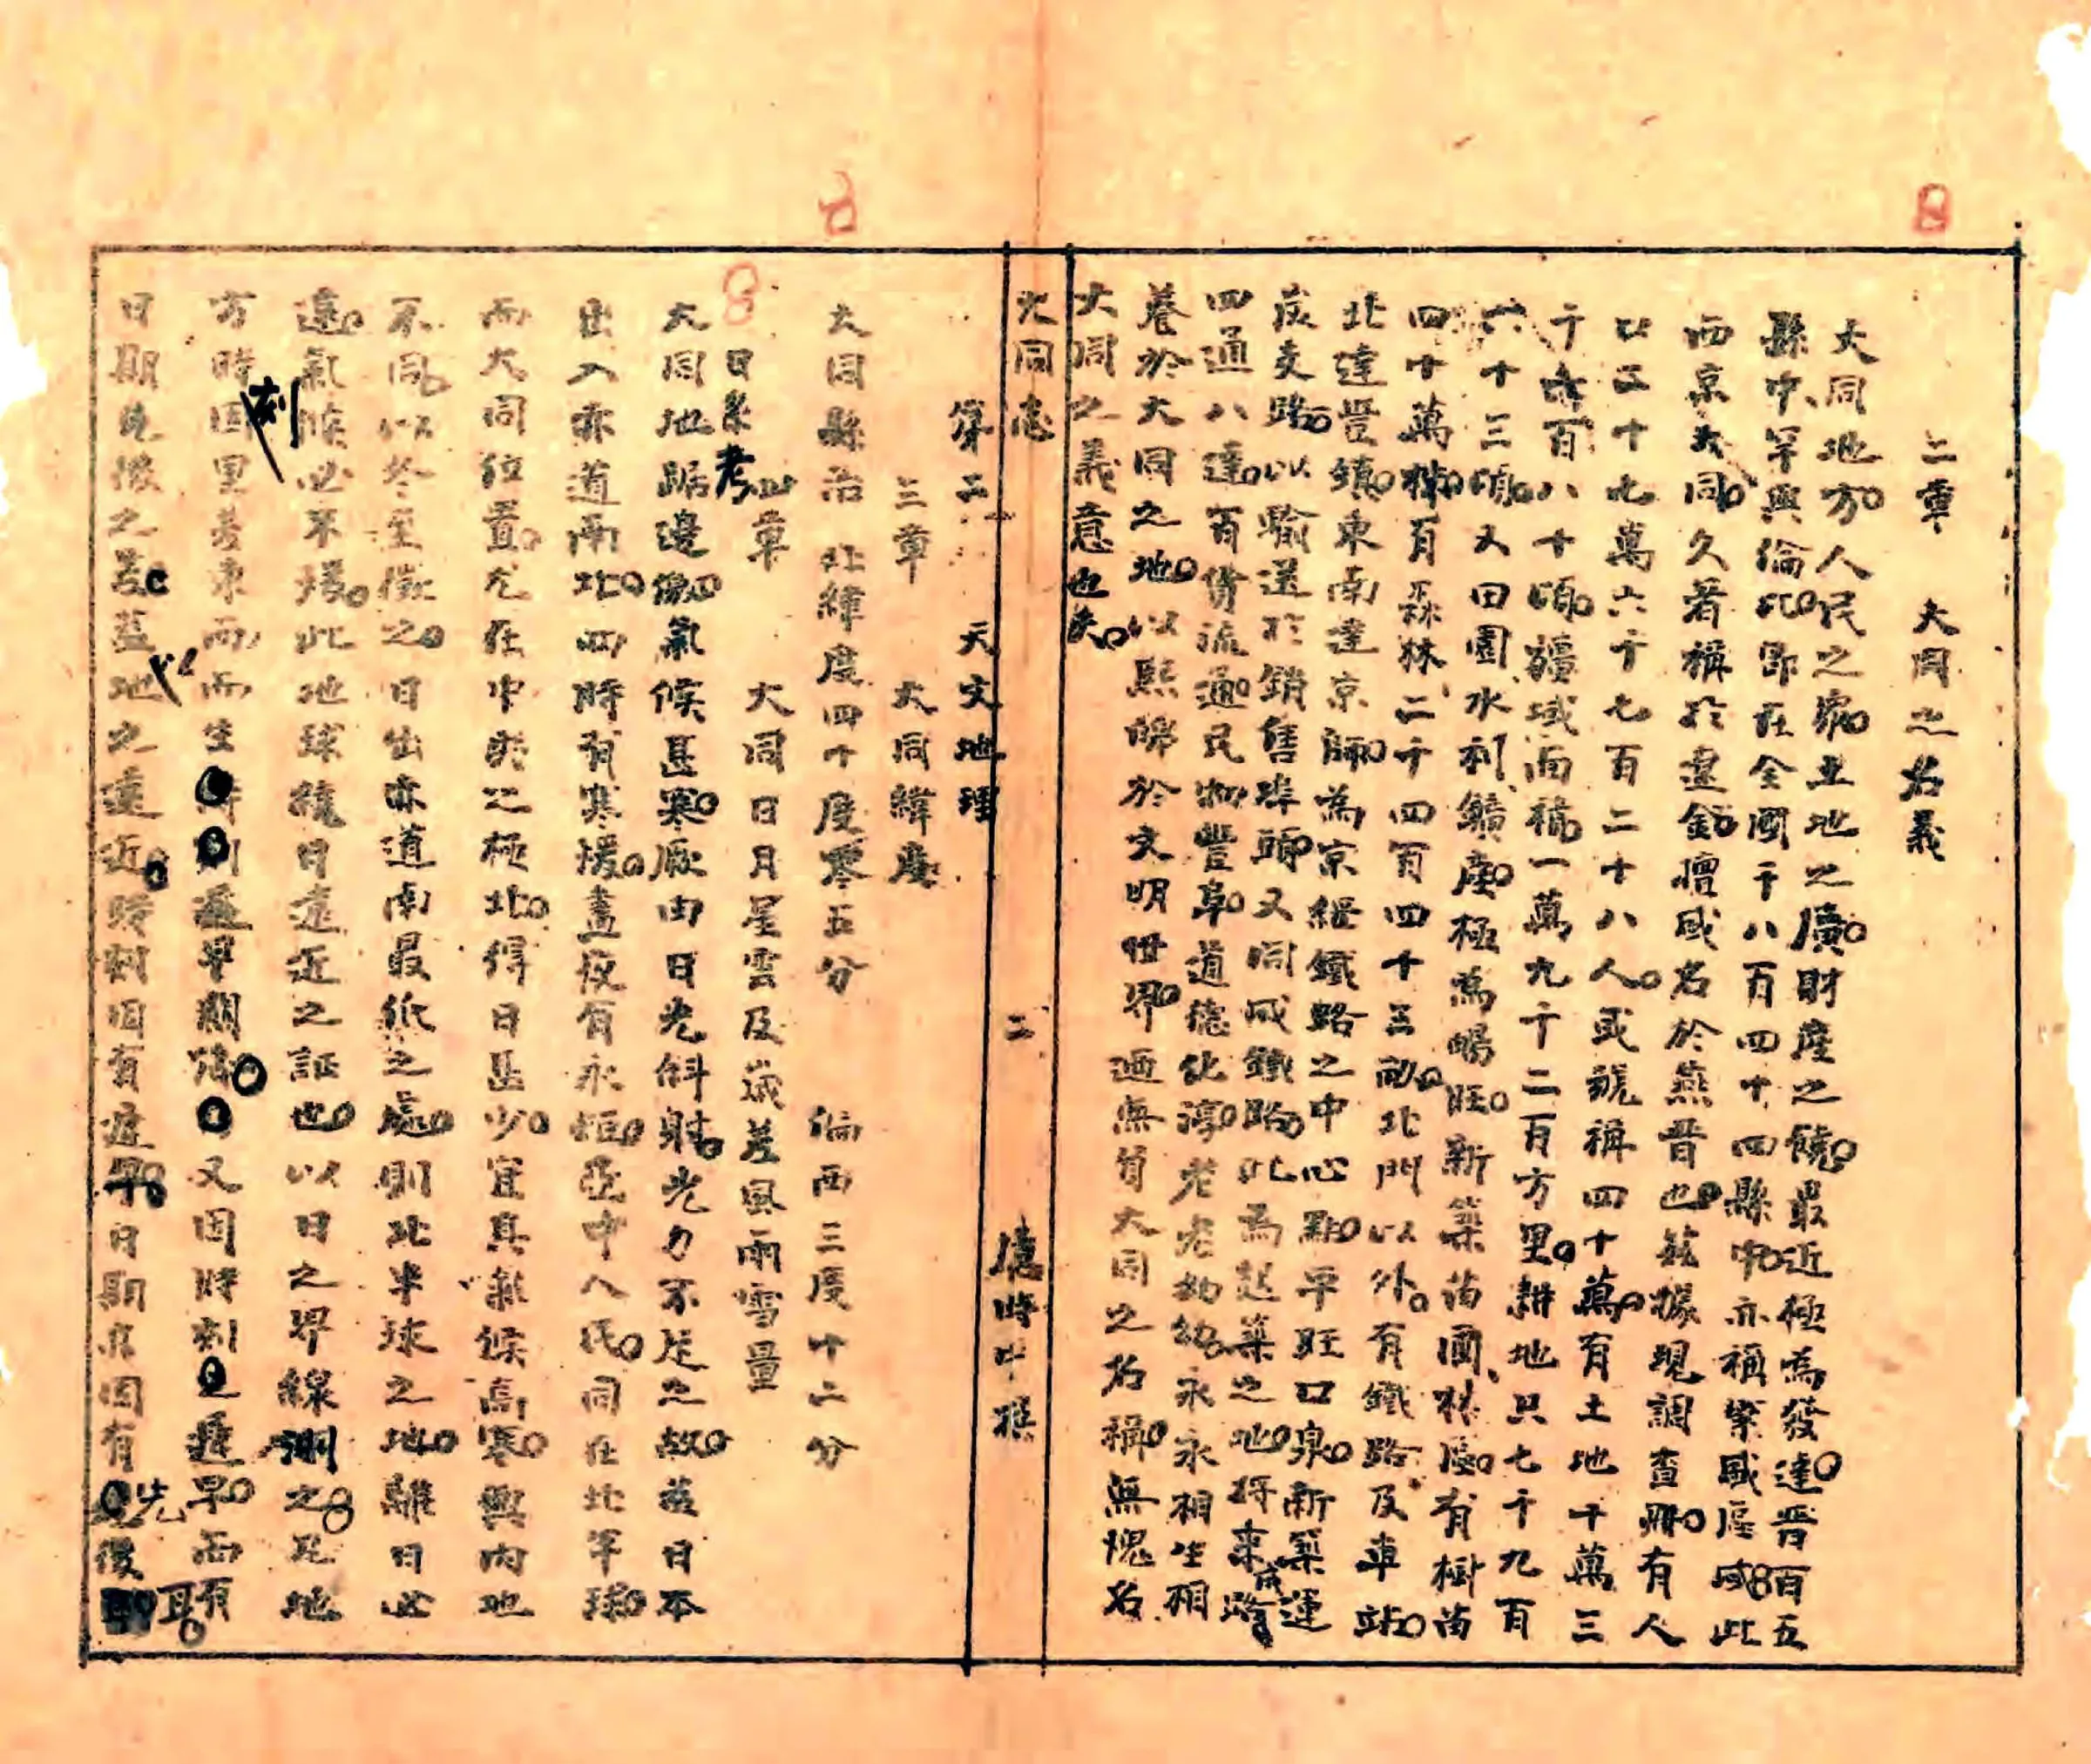 二章　大同之名義
大同地方。人民之衆。土地之廣。財產之饒。最近極為發達。晋百五
縣中、罕與倫比。即在全國千八百四十四縣中。亦稱繁盛區域。此
西京大同。久著稱於遼金。擅盛名於燕晋也。茲據現調查冊。有人
口二十七萬六千七百二十八人。或號稱四十萬。有土地千萬三
千六百八十頃。疆域面積。一萬九千二百方里。耕地只七千九百
六十三頃。又田園水利、鑛產。極為暢旺。新築苗圃、林區。有樹苗
四十萬株。有森林二千四百四十三畝。北門以外。有鐵路及車站。
北達豐鎮。東南達京師。為京綏鐵路之中心點。平旺口泉。新築運
炭支路。以輸送於銷售埠頭。又同咸鐵路。此為起築之地。將來成路
四通八達。百貨流通。民物豐阜。道德化淳。老老幼幼。永永相生相
養於大同之地。以熙皡於文明世界。迺無負大同之名稱。無愧名
大同之義意也矣。
大同志　二　應時中撰
第二　天文地理
三章　大同緯度
大同縣治　北緯度四十度零五分　偏西三度十二分
四章　大同日月星雲及歲差風雨雪量
日景考
大同地踞邊徼。氣候甚寒。厥由日光斜射。光力不足之故。茲日本
出入赤道南北。四時有寒暖。晝夜有永短。亞中人民。同在北半球。
而大同位置。尤在中央之極北。得日甚少。宜其氣候高寒。與內地
不同。以冬至徵之。日出赤道南最低之處。則北半球之地。離日必
遠。氣候必不暖。此地球繞日遠近之証也。以日之界線測之。凡地
方時刻因里差東西而生遲早。又因時刻遲早。而有
日期先後之差。蓋地之遠近。時刻固有遲早。日期亦因有先後耳。